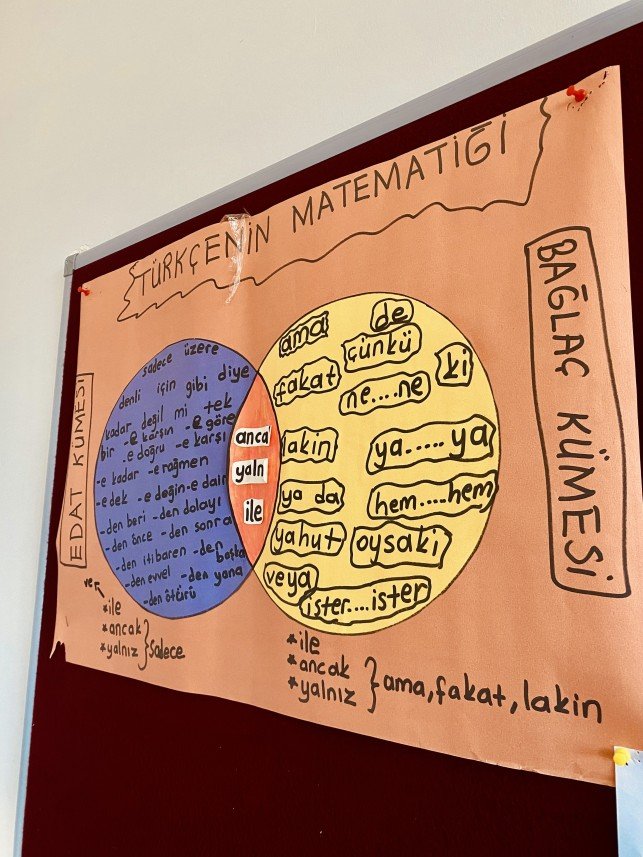 TÜRKÇENİN MATEMATİĞİ
EDAT KÜMESİ
sadece üzere
denli için gibi diye
kadar değil mi tek
bir -e karşın -e göre
-e doğru -e karşı
-e kadar -e rağmen
-e dek -e değin -e dair
-den beri -den dolayı
-den önce -den sonra
-den itibaren -den başka
-den evvel -den yana
-den ötürü
anca
yaln
ile
ama
de
çünkü
fakat
ki
ne....ne
lakin
ya.....ya
ya da
hem....hem
yahut
oysaki
veya
ister....ister
BAĞLAÇ KÜMESİ
ve
*ile
*ancak
*yalnız } sadece
*ile
*ancak
*yalnız } ama, fakat, lakin